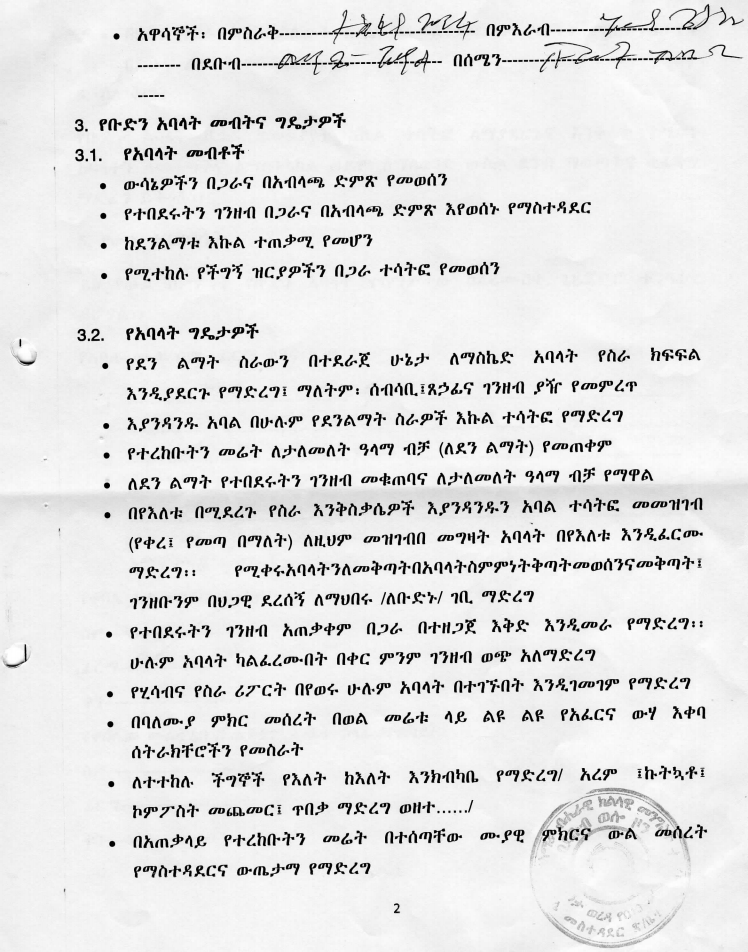 • አዋሳኞች፡ በምስራቅ---------------------------------- በምእራብ------------------------
-------- በደቡብ---------------------------------- በሰሜን----------------------------------
-----
3. የቡድን አባላት መብትና ግዴታዎች
3.1. የአባላት መብቶች
• ውሳኔዎችን በጋራና በአብላጫ ድምጽ የመወሰን
• የተበደሩትን ገንዘብ በጋራና በአብላጫ ድምጽ እየወሰኑ የማስተዳደር
• ከደንልማቱ እኩል ተጠቃሚ የመሆን
• የሚተከሉ የችግኝ ዝርያዎችን በጋራ ተሳትፎ የመወሰን
3.2. የአባላት ግዴታዎች
• የደን ልማት ስራውን በተደራጀ ሁኔታ ለማስኬድ አባላት የስራ ክፍፍል
እንዲያደርጉ የማድረግ፤ ማለትም፡ ሰብሳቢ፤ጸኃፊና ገንዘብ ያዥ የመምረጥ
• እያንዳንዱ አባል በሁሉም የደንልማት ስራዎች እኩል ተሳትፎ የማድረግ
• የተረከቡትን መሬት ለታለመለት ዓላማ ብቻ (ለደን ልማት) የመጠቀም
• ለደን ልማት የተበደሩትን ገንዘብ መቁጠባና ለታለመለት ዓላማ ብቻ የማዋል
• በየእለቱ በሚደረጉ የስራ እንቅስቃሴዎች እያንዳንዱን አባል ተሳትፎ መመዝገብ
(የቀረ፤ የመጣ በማለት) ለዚህም መዝገብበ መግዛት አባላት በየእለቱ እንዲፈርሙ
ማድረግ፡፡ የሚቀሩአባላትንለመቅጣትበአባላትስምምነትቅጣትመወሰንናመቅጣት፤
ገንዘቡንም በህጋዊ ደረሰኝ ለማህበሩ /ለቡድኑ/ ገቢ ማድረግ
• የተበደሩትን ገንዘብ አጠቃቀም በጋራ በተዘጋጀ እቅድ እንዲመራ የማድረግ፡፡
ሁሉም አባላት ካልፈረሙበት በቀር ምንም ገንዘብ ወጭ አለማድረግ
• የሂሳብና የስራ ሪፖርት በየወሩ ሁሉም አባላት በተገኙበት እንዲገመገም የማድረግ
• በባለሙያ ምክር መሰረት በወል መሬቱ ላይ ልዩ ልዩ የአፈርና ውሃ እቀባ
ሰትራክቸሮችን የመስራት
• ለተተከሉ ችግኞች የእለት ከእለት እንክብካቤ የማድረግ/ አረም ፤ኩትኳቶ፤
ኮምፖስት መጨመር፤ ጥበቃ ማድረግ ወዘተ....../
• በአጠቃላይ የተረከቡትን መሬት በተሰጣቸው ሙያዊ ምክርና ውል መሰረት
የማስተዳደርና ውጤታማ የማድረግ
2